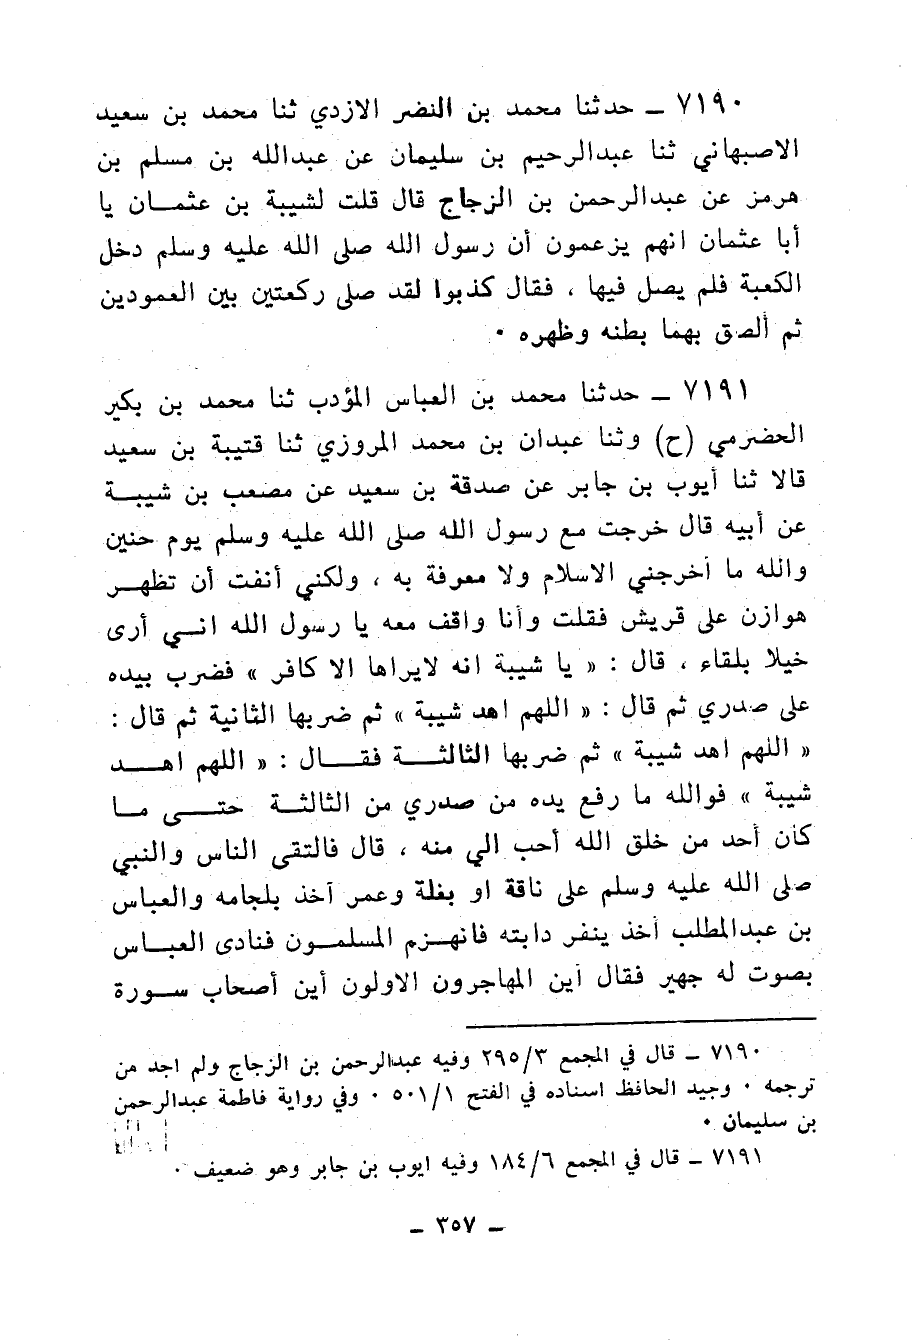 ٧١٩٠ ـ حدثنا محمد بن النضر الازدي ثنا محمد بن سعيد
الاصبهاني ثنا عبدالرحيم بن سليمان عن عبدالله بن مسلم بن
هرمز عن عبدالرحمن بن الزجاج قال قلت لشيبة بن عثمـــان يا
أبا عثمان انهم يزعمون أن رسول الله صلى الله عليه وسلم دخل
الكعبة فلم يصل فيها ، فقال كذبوا لقد صلى ركعتين بين العمودين
ثم ألصق بهما بطنه وظهره ٠
٧١٩١ ـ حدثنا محمد بن العباس المؤدب ثنا محمد بن بكير
الحضرمي (ح) وثنا عبدان بن محمد المروزي ثنا قتيبة بن سعيد
قالا ثنا أيوب بن جابر عن صدقة بن سعيد عن مصعب بن شيبـــة
عن أبيه قال خرجت مع رسول الله صلى الله عليه وسلم يوم حنين
والله ما أخرجني الاسلام ولا معرفة به ، ولكني أنفت أن تظهـــر
هوازن على قريش فقلت وأنا واقف معه يا رسول الله انـــي أرى
خيلا بلقاء ، قال : « يا شيبة انه لايراها الا كافر » فضرب بيده
على صدري ثم قال : « اللهم اهد شيبة » ثم ضربها الثانية ثم قال :
« اللهم اهد شيبة » ثم ضربها الثالثـــة فقـــال : « اللهم اهـــد
شيبة » فوالله ما رفع يده من صدري من الثالثـــة حتـــى مـــا
كان أحد من خلق الله أحب الي منه ، قال فالتقى الناس والنبي
صلى الله عليه وسلم على ناقة او بغلة وعمر آخذ بلجامه والعباس
بن عبدالمطلب آخذ ينفر دابته فانهـــزم المسلمـــون فنادى العبـــاس
بصوت له جهير فقال أين المهاجرون الاولون أين أصحاب ســـورة
٧١٩٠ ـ قال في المجمع ٢٩٥/٣ وفيه عبدالرحمن بن الزجاج ولم اجد من
ترجمه ٠ وجيد الحافظ اسناده في الفتح ٥٠١/١ ٠ وفي رواية فاطمة عبدالرحمن
بن سليمان ٠
٧١٩١ ـ قال في المجمع ١٨٤/٦ وفيه ايوب بن جابر وهو ضعيف ٠
ـ ٣٥٧ ـ